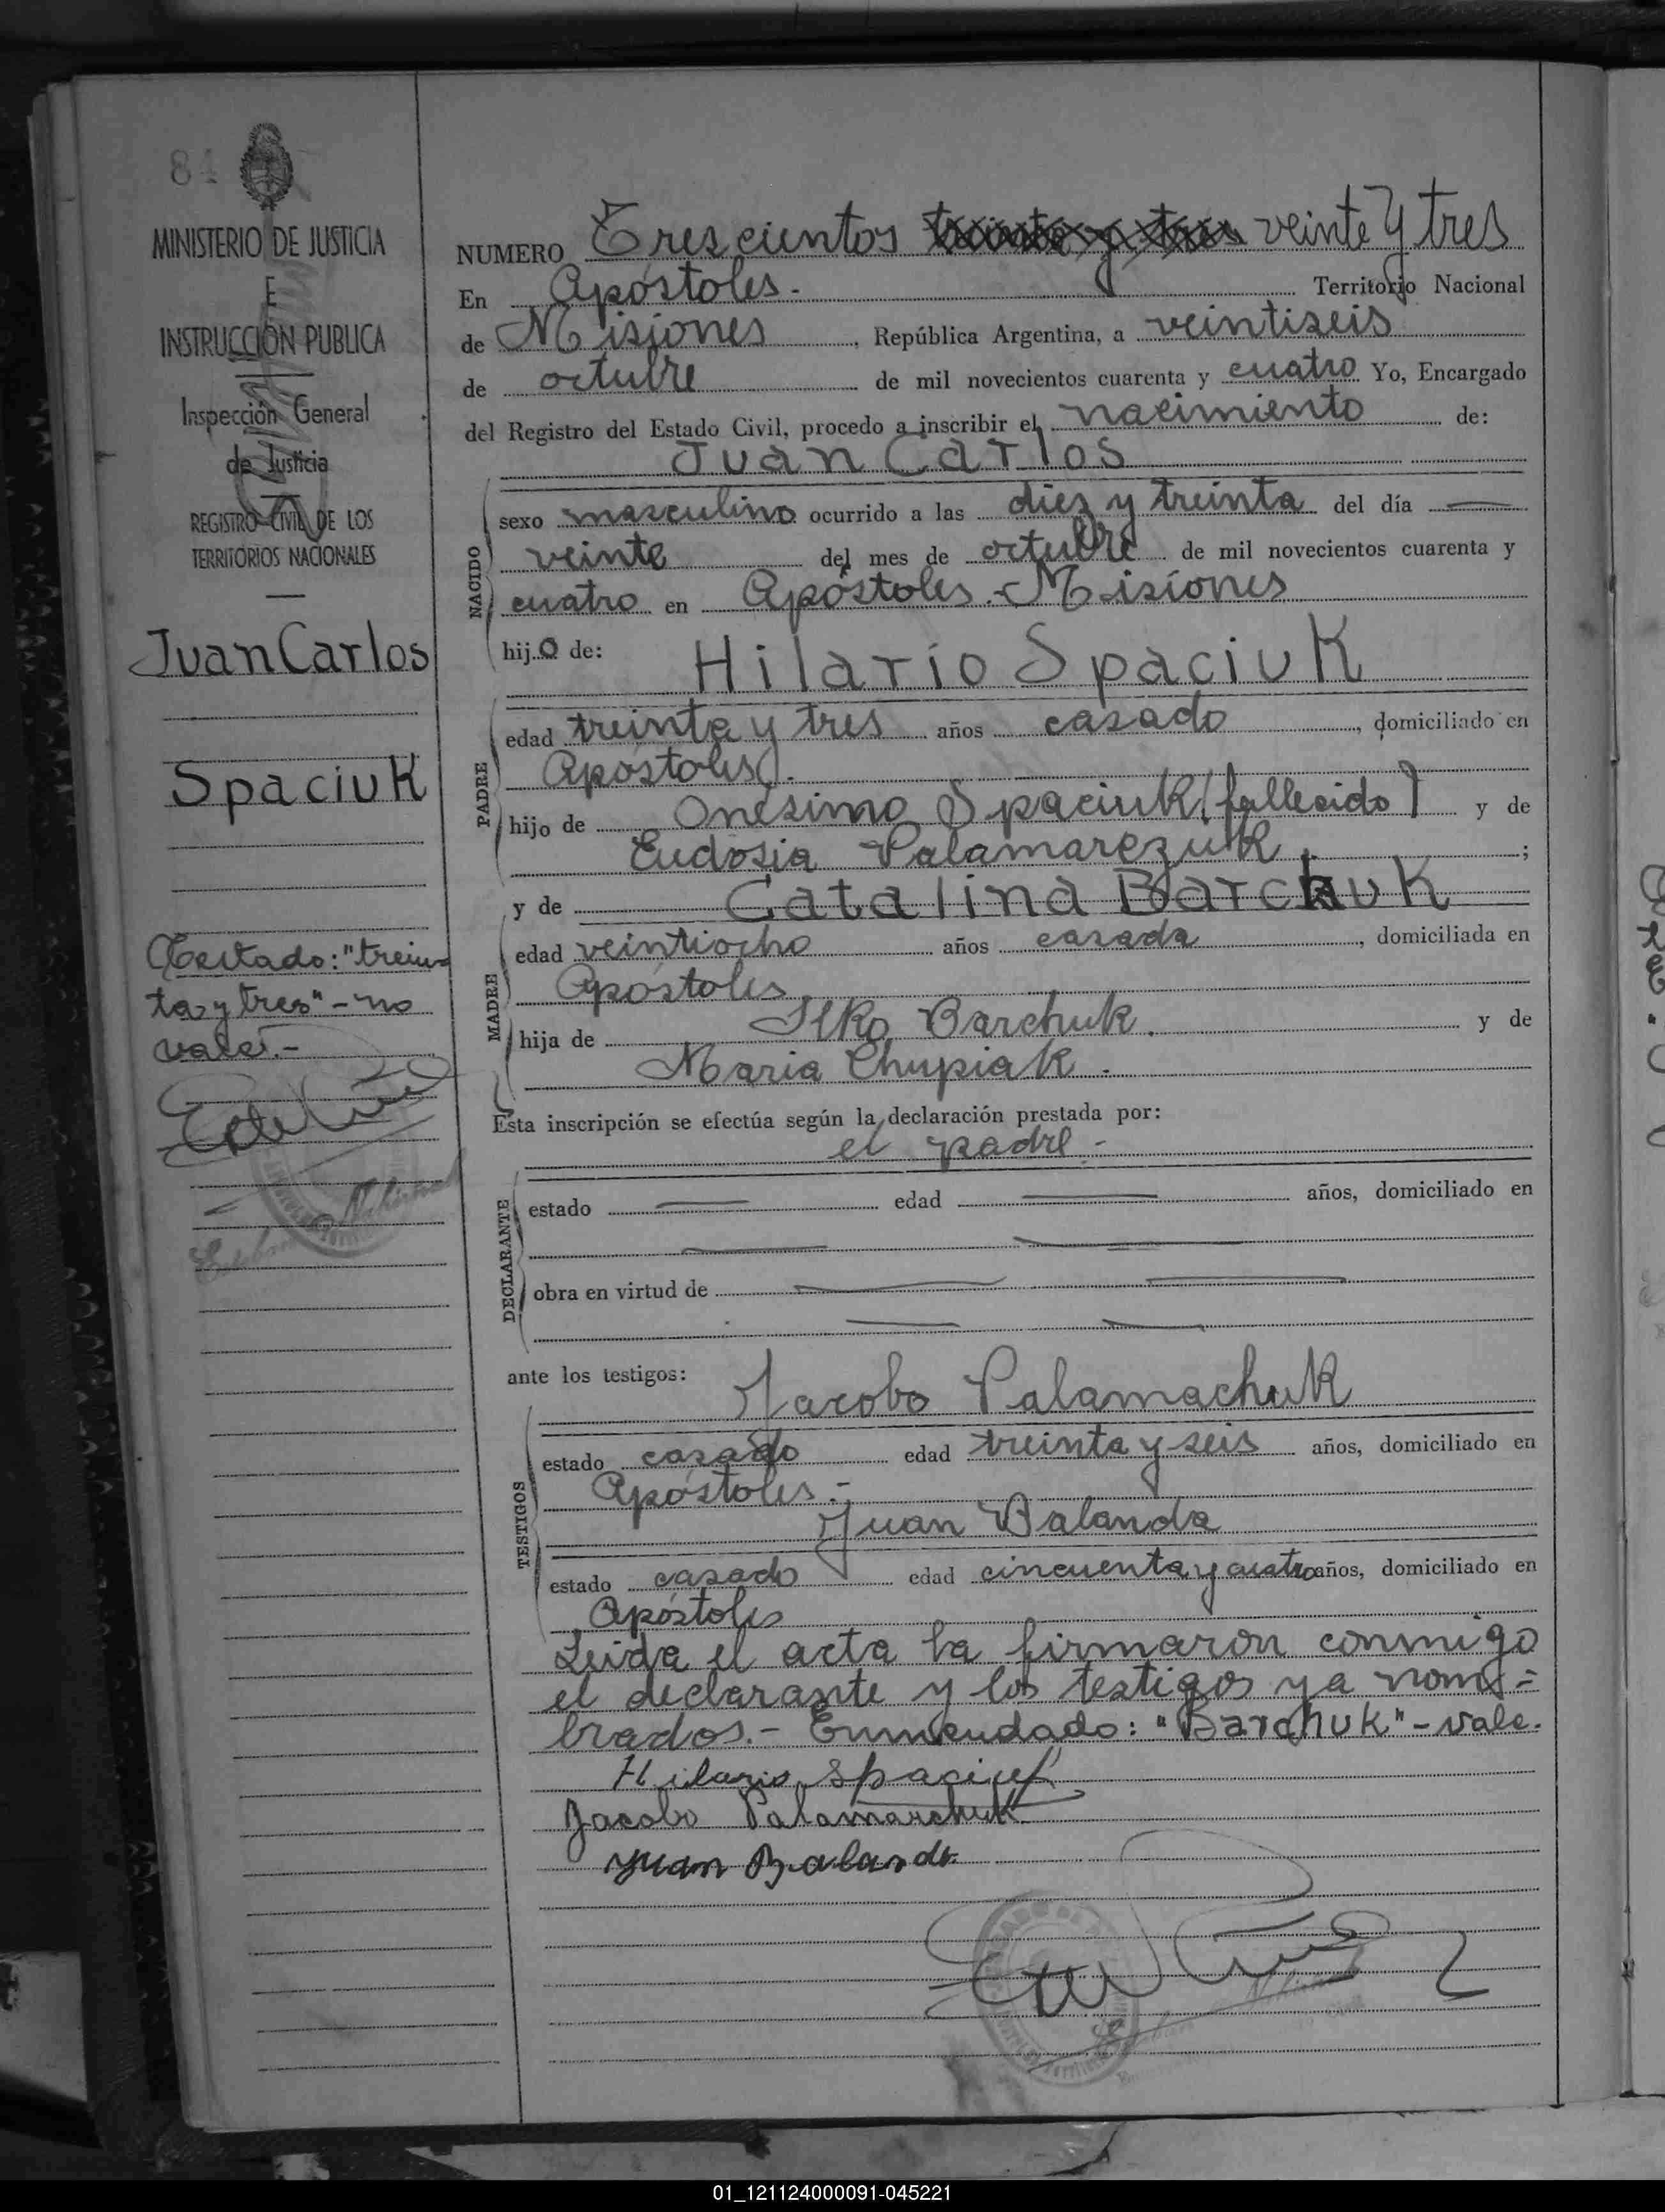 84
MINISTERIO DE JUSTICIA
E
INSTRUCCIÓN PUBLICA
Inspección General
de Justicia
REGISTRO CIVIL DE LOS
TERRITORIOS NACIONALES
Juan Carlos
Spaciuk
Testado: "trein-
ta y tres" - no
vale.-
NUMERO Trescientos treinta y tres veinte y tres
En Apóstoles.- Territorio Nacional
de Misiones, República Argentina, a veintiseis
de octubre de mil novecientos cuarenta y cuatro Yo, Encargado
del Registro del Estado Civil, procedo a inscribir el nacimiento de:
Juan Carlos
NACIDO
sexo masculino ocurrido a las diez y treinta del día
veinte del mes de octubre de mil novecientos cuarenta y
cuatro en Apóstoles.-Misiones
hijo de: Hilario Spaciuk
PADRE
edad treinta y tres años casado, domiciliado en
Apóstoles.
hijo de Onésimo Spaciuk (fallecido) y de
Eudosia Palamarezuk;
y de Catalina Barchuk
MADRE
edad veintiocho años casada, domiciliada en
Apóstoles
hija de Ilko Barchuk. y de
Maria Chupiak.
Esta inscripción se efectúa según la declaración prestada por:
el padre.-
DECLARANTE
estado edad años, domiciliado en
obra en virtud de
ante los testigos: Jacobo Palamachuk
TESTIGOS
estado casado edad treinta y seis años, domiciliado en
Apóstoles.-
Juan Balanda
estado casado edad cincuenta y cuatro años, domiciliado en
Apóstoles
Leida el acta la firmaron conmigo
el declarante y los testigos ya nom=
brados.- Enmendado: "Barchuk"-vale.
Hilario Spaciuk
Jacobo Palamarchuk
Juan Balanda
01_121124000091-045221